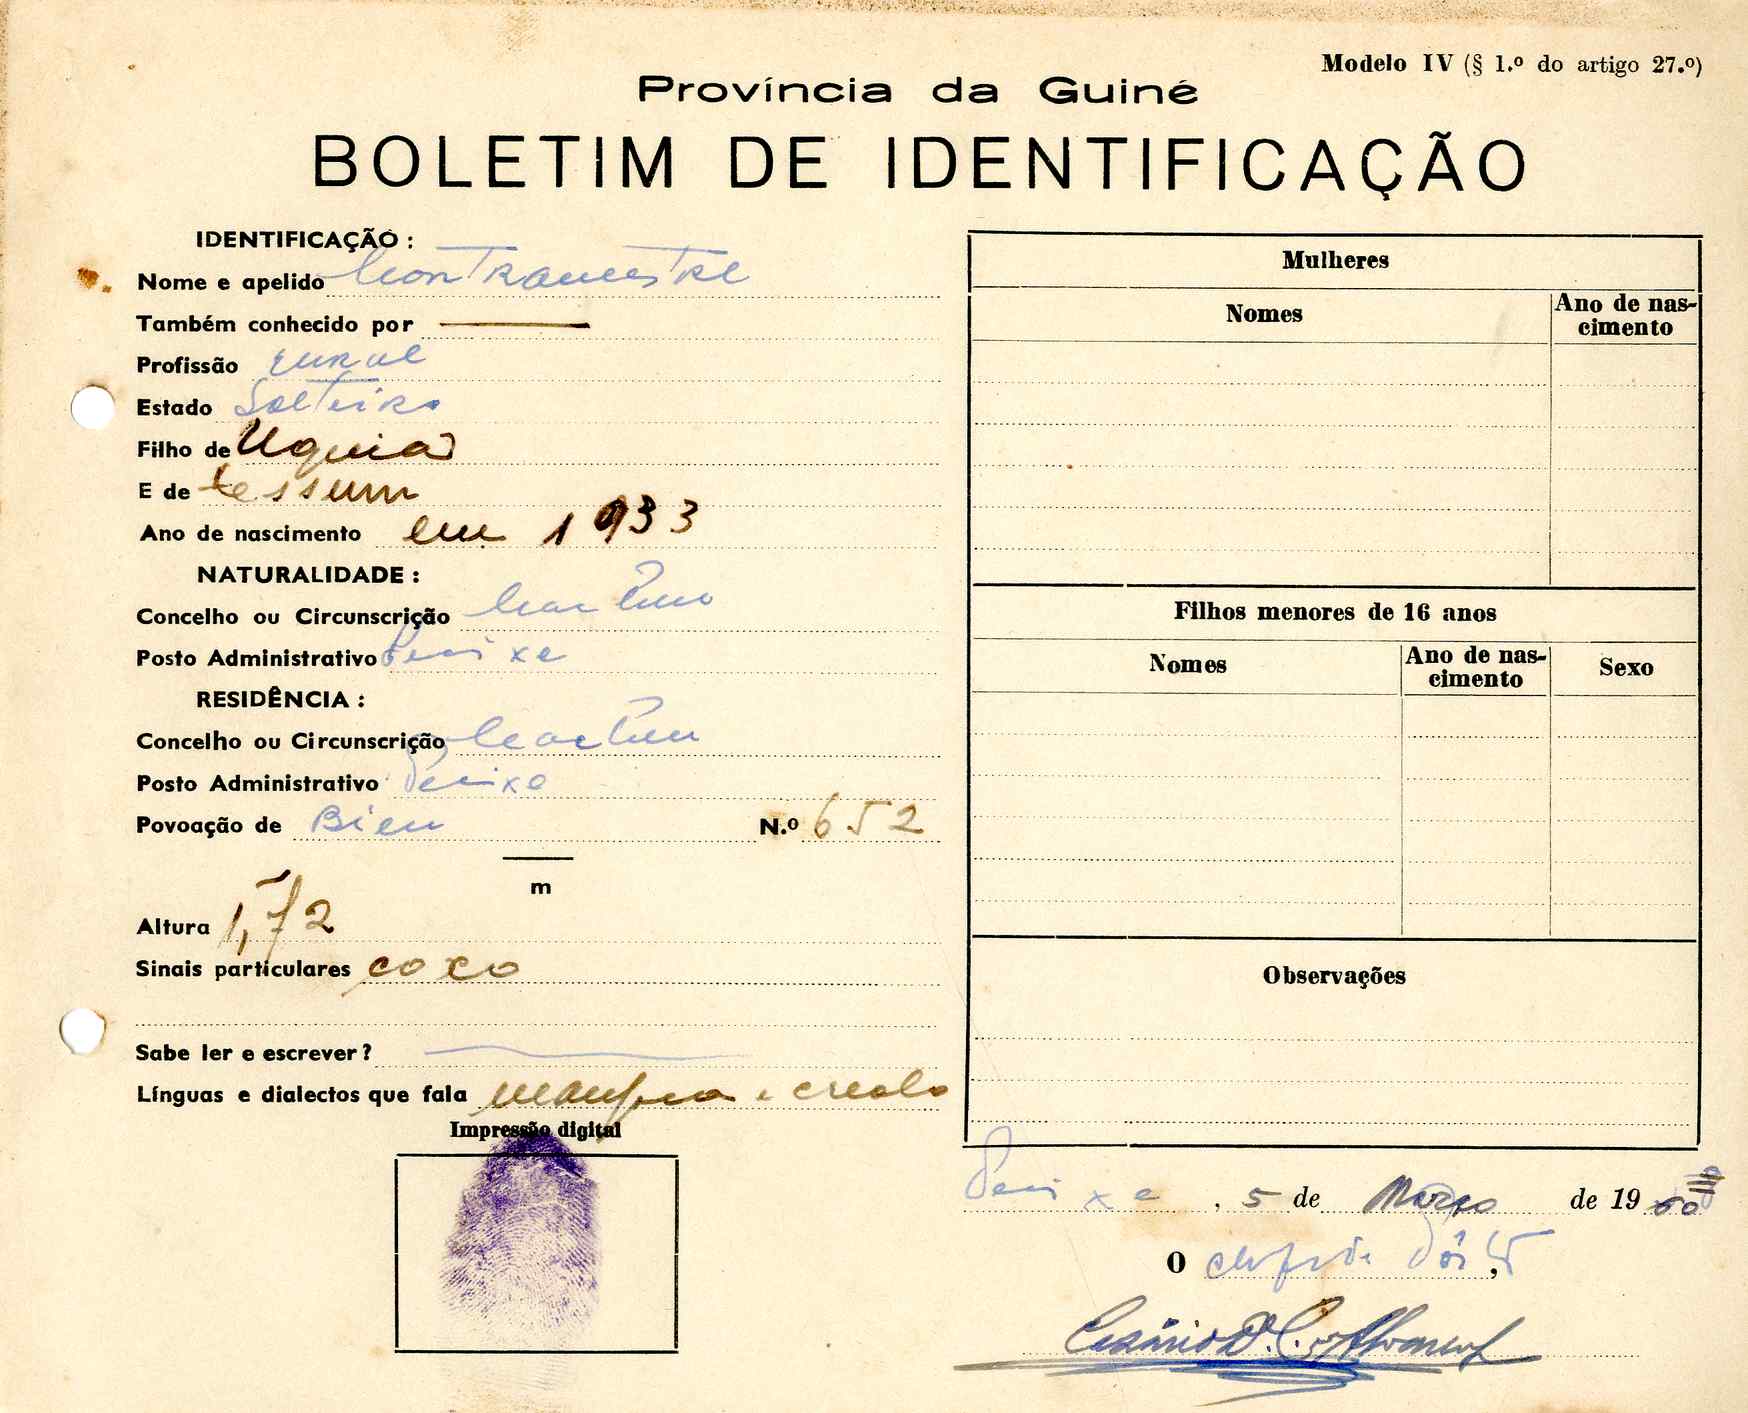 Modelo IV (§ 1.º do artigo 27.º)
Província da Guiné
BOLETIM DE IDENTIFICAÇÃO
IDENTIFICAÇÃO :
Nome e apelido Contramestre
Também conhecido por
Profissão rural
Estado Solteiro
Filho de Uquia
E de tessum
Ano de nascimento em 1933
NATURALIDADE :
Concelho ou Circunscrição
Posto Administrativo
RESIDÊNCIA :
Concelho ou Circunscrição
Posto Administrativo
Povoação de N.º 652
m
Altura 1,72
Sinais particulares coxo
Sabe ler e escrever?
Línguas e dialectos que fala e creolo
Impressão digital
Mulheres
Nomes
Ano de nas-
cimento
Filhos menores de 16 anos
Nomes
Ano de nas-
cimento
Sexo
Observações
, 5 de Março de 1960
O chefe de Pôsto,